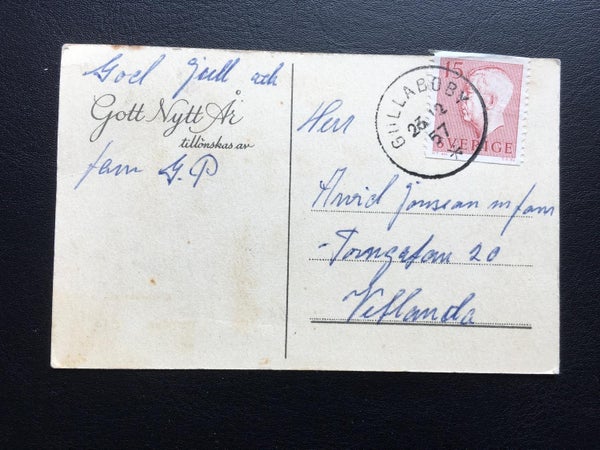 God Jull och
Gott Nytt År
tillönskas av
fam G. P
15
SVERIGE
GULLABOBY
23 12
57
Herr
Arvid Jonsson m fam
Torngatan 20
Vetlanda